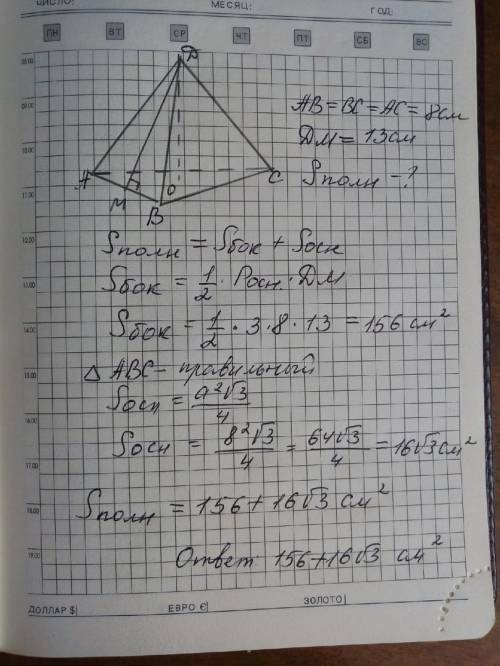 ЧИСЛО: МЕСЯЦ: ГОД:
ПН ВТ СР ЧТ ПТ СБ ВС
08.00
09.00
10.00
11.00
12.00
13.00
14.00
15.00
16.00
17.00
18.00
19.00
D
A
M
B
O
C
AB = BC = AC = 8см
DM = 13см
Sполн - ?
Sполн = Sбок + Sосн
Sбок = 1/2 · Pосн · DM
Sбок = 1/2 · 3 · 8 · 13 = 156 см²
△ ABC - правильный
Sосн = a²√3/4
Sосн = 8²√3/4 = 64√3/4 = 16√3 см²
Sполн = 156 + 16√3 см²
Ответ 156 + 16√3 см²
ДОЛЛАР $| ЕВРО €| ЗОЛОТО|